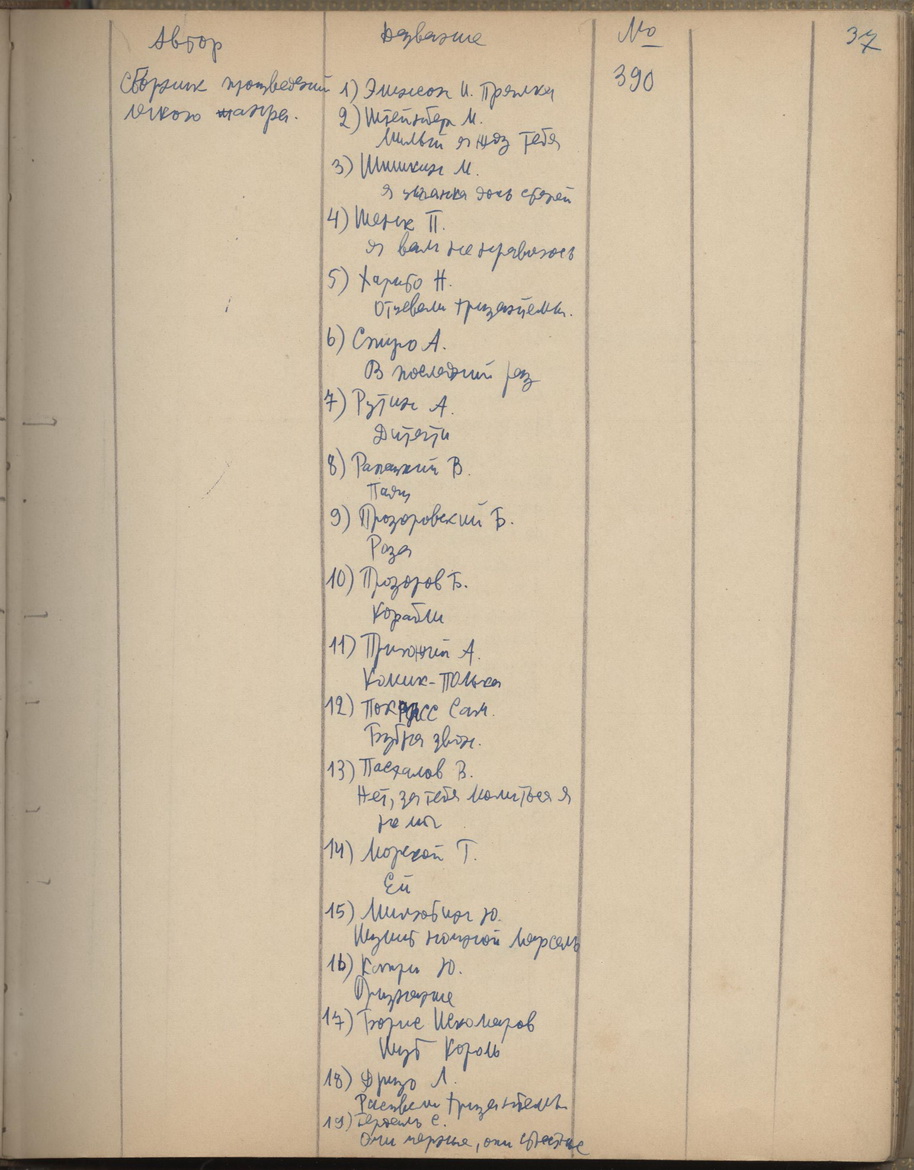 Автор Название № 37
Сборник произведений 390
легкого жанра.
1) И. Прялка
2) Штейнберг М.
Милый я жду тебя
3) Шишкин М.
я цыганка дочь степей
4) Шенк П.
я вам не нравлюсь
5) Харито Н.
Отцвели хризантемы.
6) Спиро А.
В последний раз
7) Рутин А.
Дитяти
8) Рапацкий В.
Паяц
9) Прозоровский Б.
Роза
10) Прозоров Б.
Корабли
11) А.
Комик-Полька
12) Покрасс Сам.
Бубна звон.
13) Пасхалов В.
Нет, за тебя молиться я
не мог
14) Морской Г.
Ей
15) Милютин Ю.
Шумит ночной Марсель
16) Ю.
Признание
17) Борис
Шут Король
18) Дризо Л.
Расцвели хризантемы
19) Гердель С.
Очи черные, очи